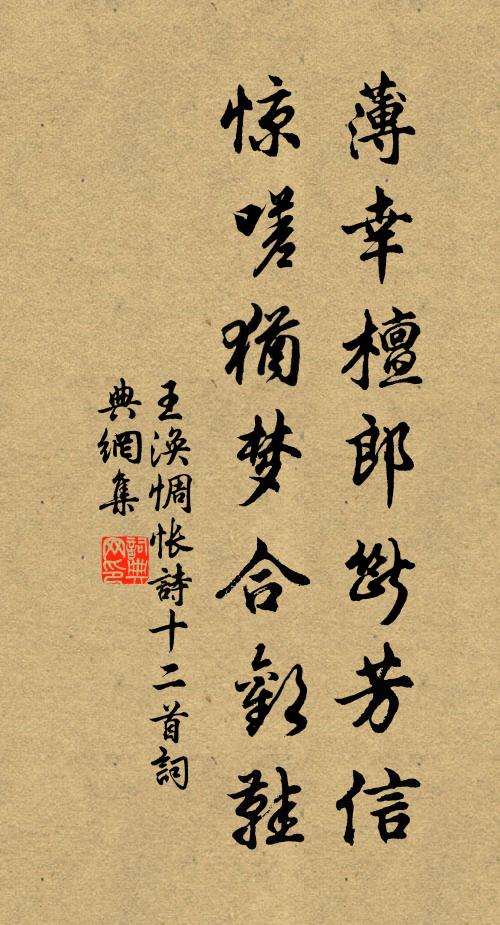 薄幸檀郎断芳信
惊嗟犹梦合欢鞋
王涣惆怅詩十二首詞
典網集
詞典
网印